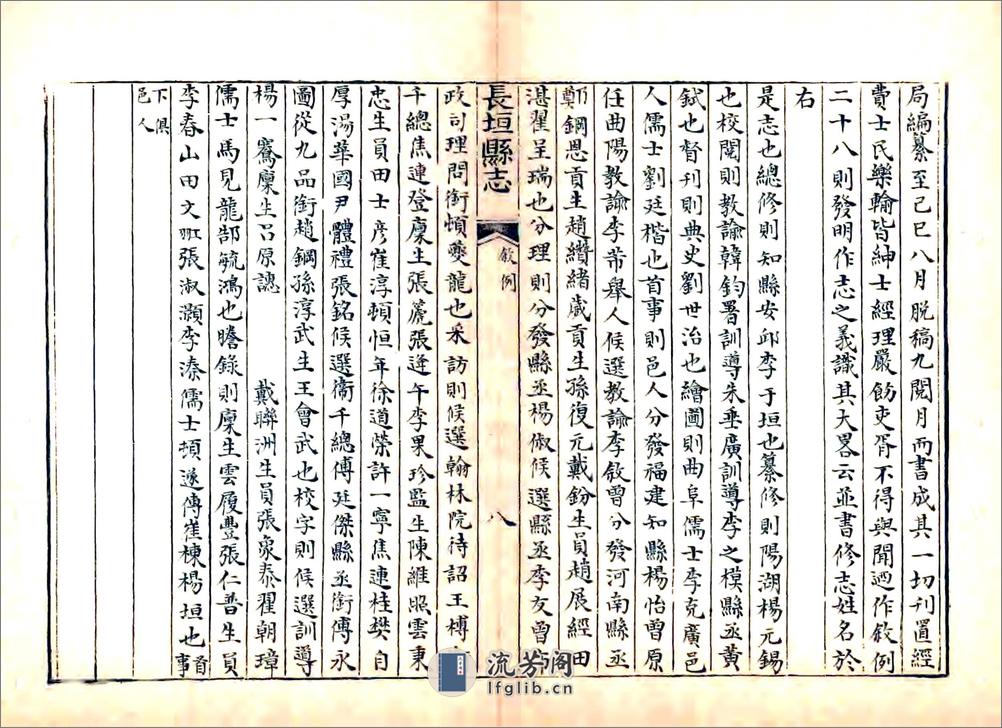 局編纂至己巳八月脫稿九閱月而書成其一切刊置經
費士民樂輸皆紳士經理嚴飭吏胥不得與聞迺作敘例
二十八則發明作志之義識其大畧云並書修志姓名於
右
是志也總修則知縣安邱李于垣也纂修則陽湖楊元錫
也校閱則教諭韓鈞署訓導朱垂廣訓導李之模縣丞黃
鉽也督刊則典史劉世治也繪圖則曲阜儒士李克廣邑
人儒士劉廷楷也首事則邑人分發福建知縣楊怡曾原
任曲陽教諭李芾舉人候選教諭李敘曾分發河南縣丞
鄭鋼恩貢生趙纘緒歲貢生孫復元戴鈖生員趙展經田
湛翟呈瑞也分理則分發縣丞楊俶候選縣丞李友曾布
長垣縣志
敘例
八
政司理問銜頓夔龍也采訪則候選翰林院待詔王槫
千總焦連登廩生張簏張逄午李果珍監生陳維照雲秉
忠生員田士彥崔淳頓恒年徐道榮許一寧焦連桂樊自
厚湯華國尹體禮張銘候選衞千總傅廷傑縣丞銜傅永
圖從九品銜趙鋼孫淳武生王會武也校字則候選訓導
楊一騫廩生呂原認 戴聯洲生員張象泰翟朝璋
儒士馬見龍郜毓鴻也謄錄則廩生雲履豐張仁普生員
李春山田文 張淑灝李溱儒士頓遂傅崔棟楊垣也首事
下俱
邑人
流芳阁
lfglib.cn